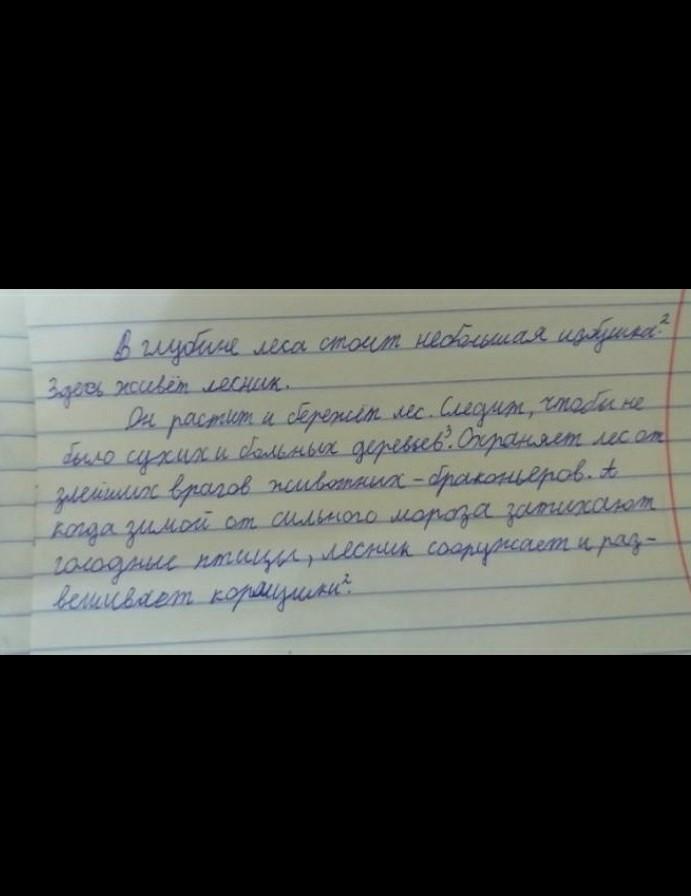 В глубине леса стоит небольшая избушка.²
Здесь живёт лесник.
Он растит и бережёт лес. Следит, чтобы не
было сухих и больных деревьев³. Охраняет лес от
злейших врагов животных - браконьеров. А
когда зимой от сильного мороза затихают
голодные птицы, лесник сооружает и раз-
вешивает кормушки².